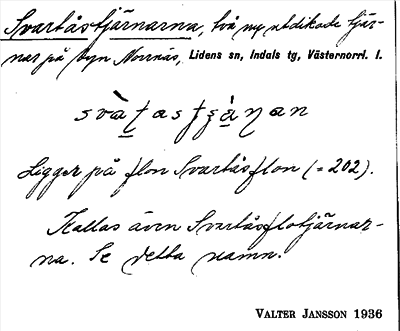 Svartåstjärnarna, två my utdikade tjär-
nar på byn Norrnäs, Lidens sn, Indals tg, Västernorrl. l.
Ligger på flon Svartåsflon (= 202).
Kallas även Svartåsflotjärnar-
na. Se detta namn.
VALTER JANSSON 1936